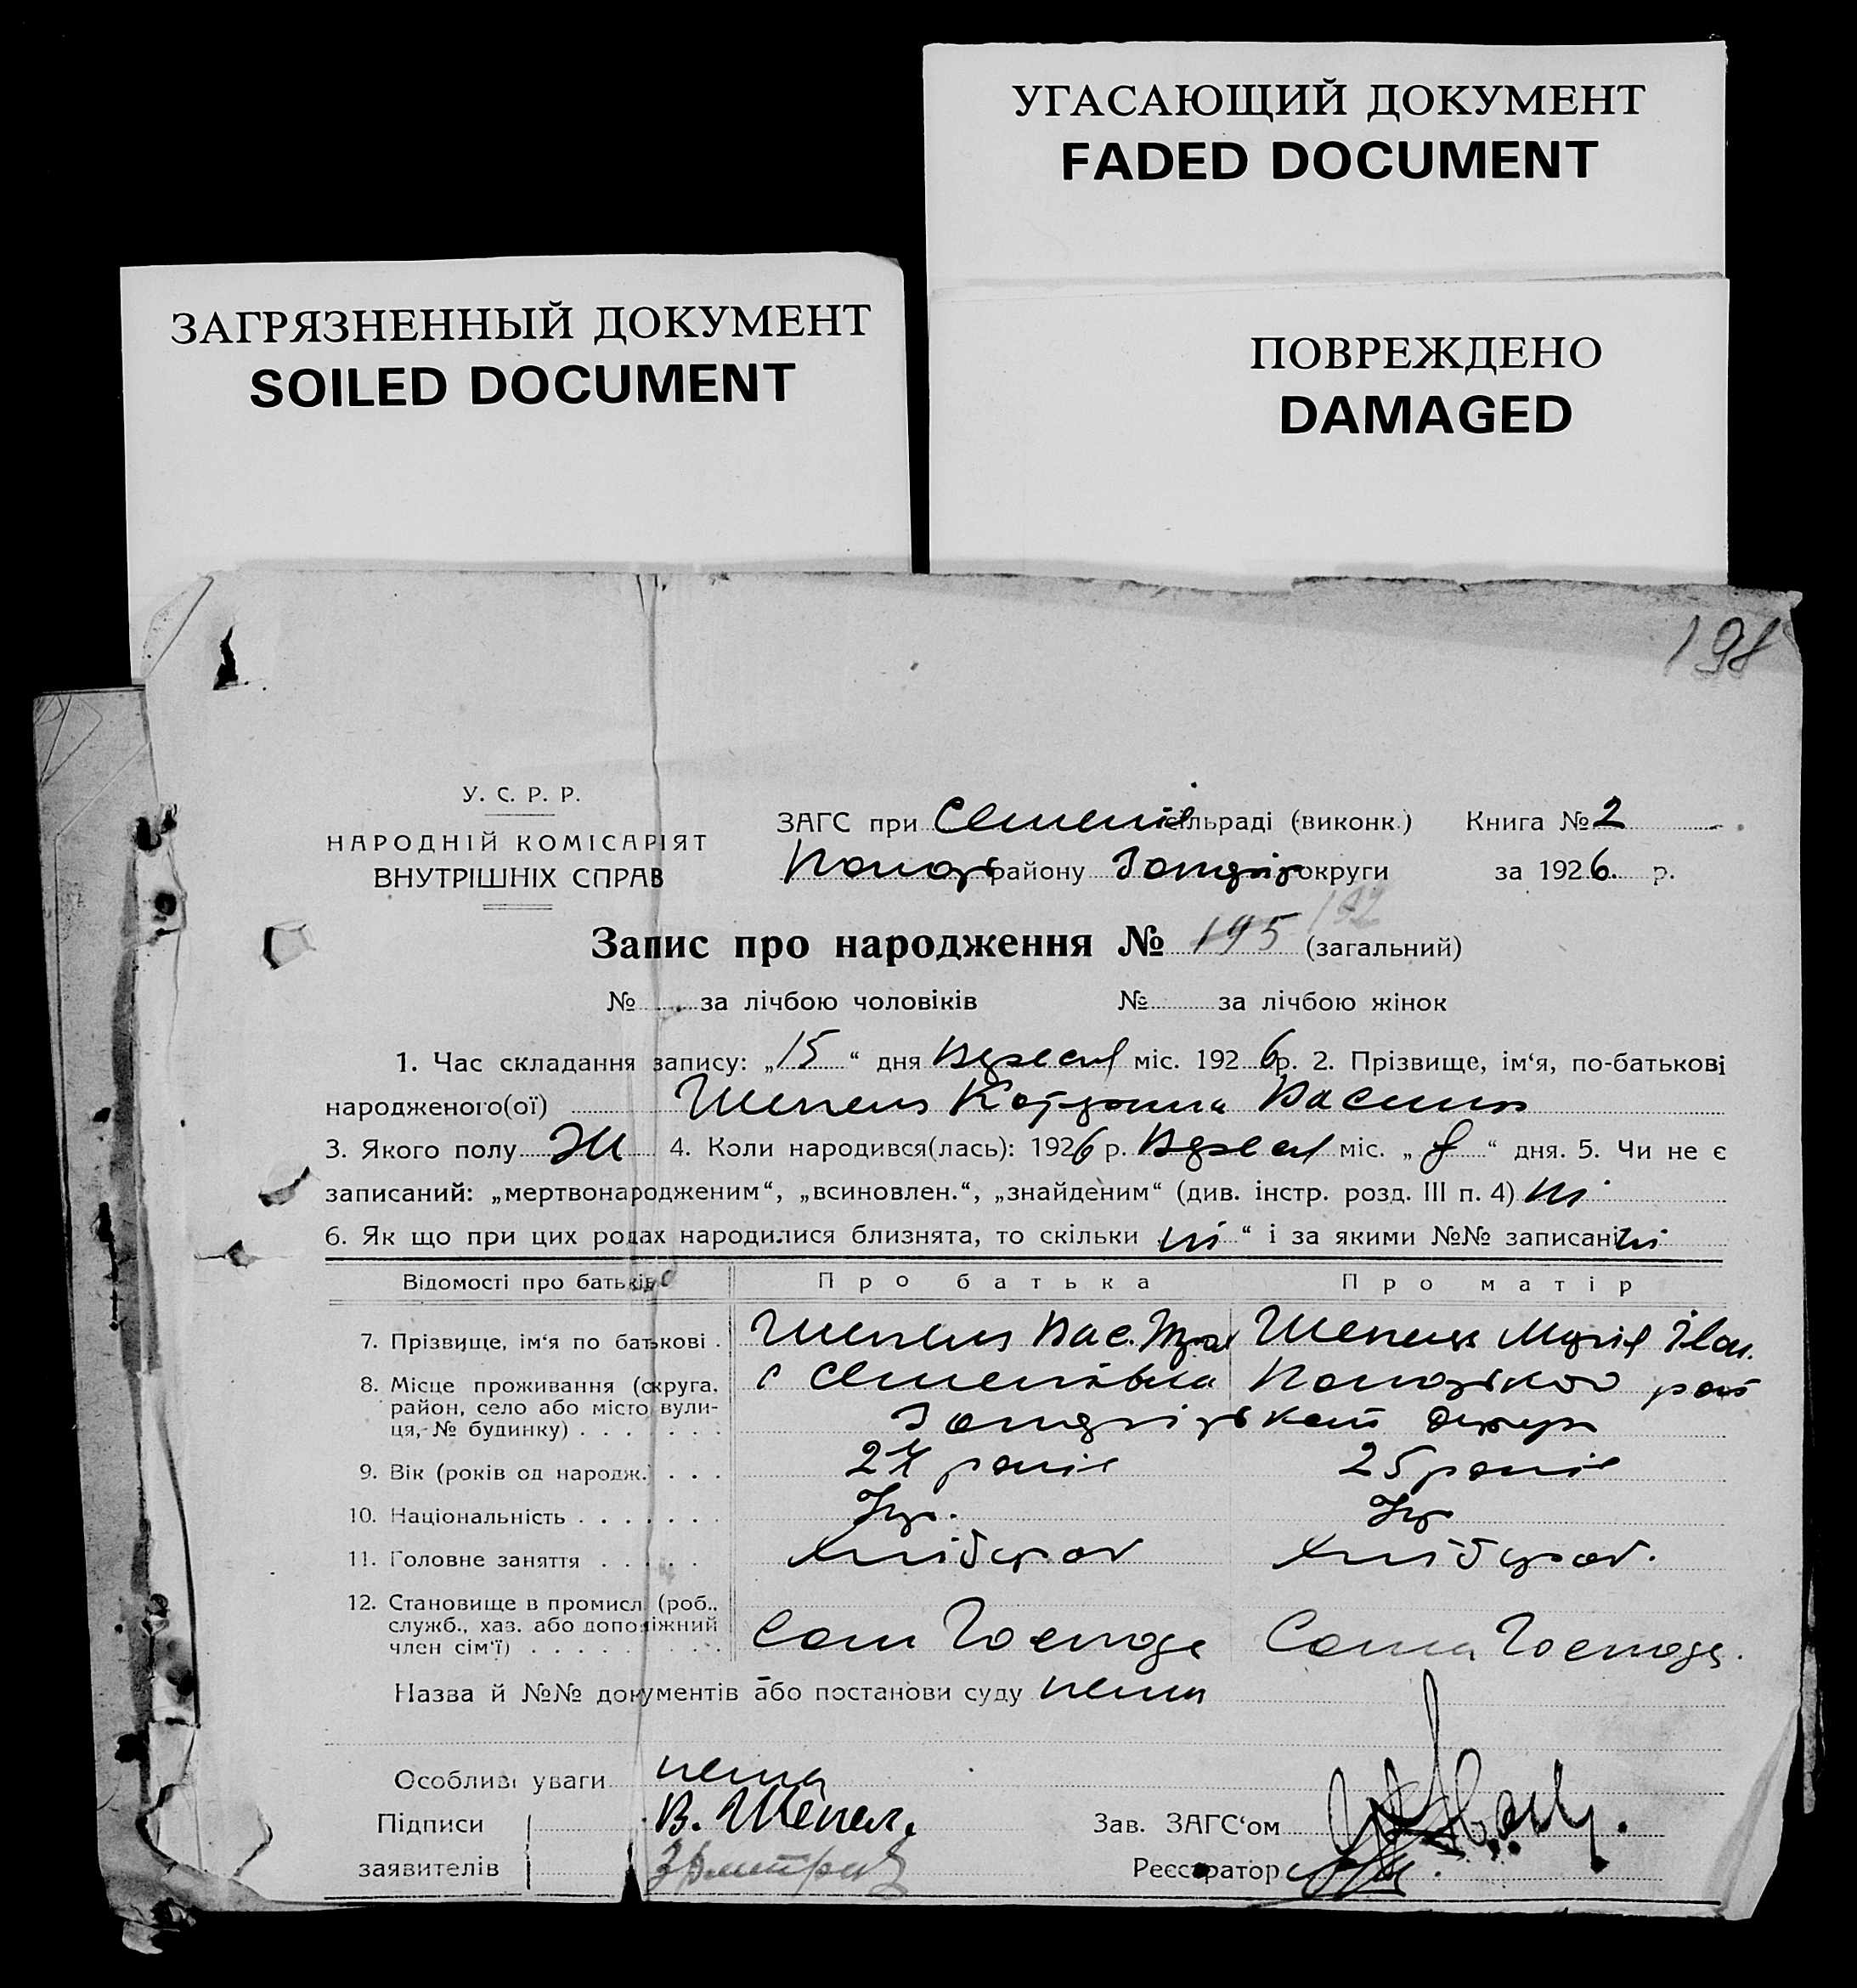 УГАСАЮЩИЙ ДОКУМЕНТ
FADED DOCUMENT
ЗАГРЯЗНЕННЫЙ ДОКУМЕНТ
SOILED DOCUMENT
ПОВРЕЖДЕНО
DAMAGED
198
У. С. Р. Р.
НАРОДНІЙ КОМІСАРІЯТ
ВНУТРІШНІХ СПРАВ
ЗАГС при Семенів сільраді (виконк.) Книга № 2
району округи за 1926. р.
192
Запис про народження № 195 (загальний)
№ за лічбою чоловіків № за лічбою жінок
1. Час складання запису: „15“ дня Вересня міс. 1926 р. 2. Прізвище, ім‘я, по-батькові
народженого(ої) Шепель
3. Якого полу Ж 4. Коли народився(лась): 1926 р. Вересня міс. „8“ дня. 5. Чи не є
записаний: „мертвонародженим“, „всиновлен.“, „знайденим“ (див. інстр. розд. III п. 4) ні
6. Як що при цих родах народилися близнята, то скільки „ні“ і за якими №№ записані ні
Відомості про батьків Про батька Про матір
7. Прізвище, ім‘я по батькові . Шепель Вас. Шепель Марія Іван.
8. Місце проживання (округа, район, село або місто, вули-ця, № будинку) . . . . . . . с Семенівка
округи
9. Вік (років од народж.) . . . 27 років 25 років
10. Національність . . . . . . . Укр. Укр
11. Головне заняття . . . . . Хлібороб Хлібороб.
12. Становище в промисл. (роб., служб., хаз. або допоміжний член сім‘ї) . . . . . . . . . Сам Господ Сама Господ.
Назва й №№ документів або постанови суду нема
Особливі уваги нема
Підписи В. Шепель. Зав. ЗАГС‘ом
заявителів Реєстратор